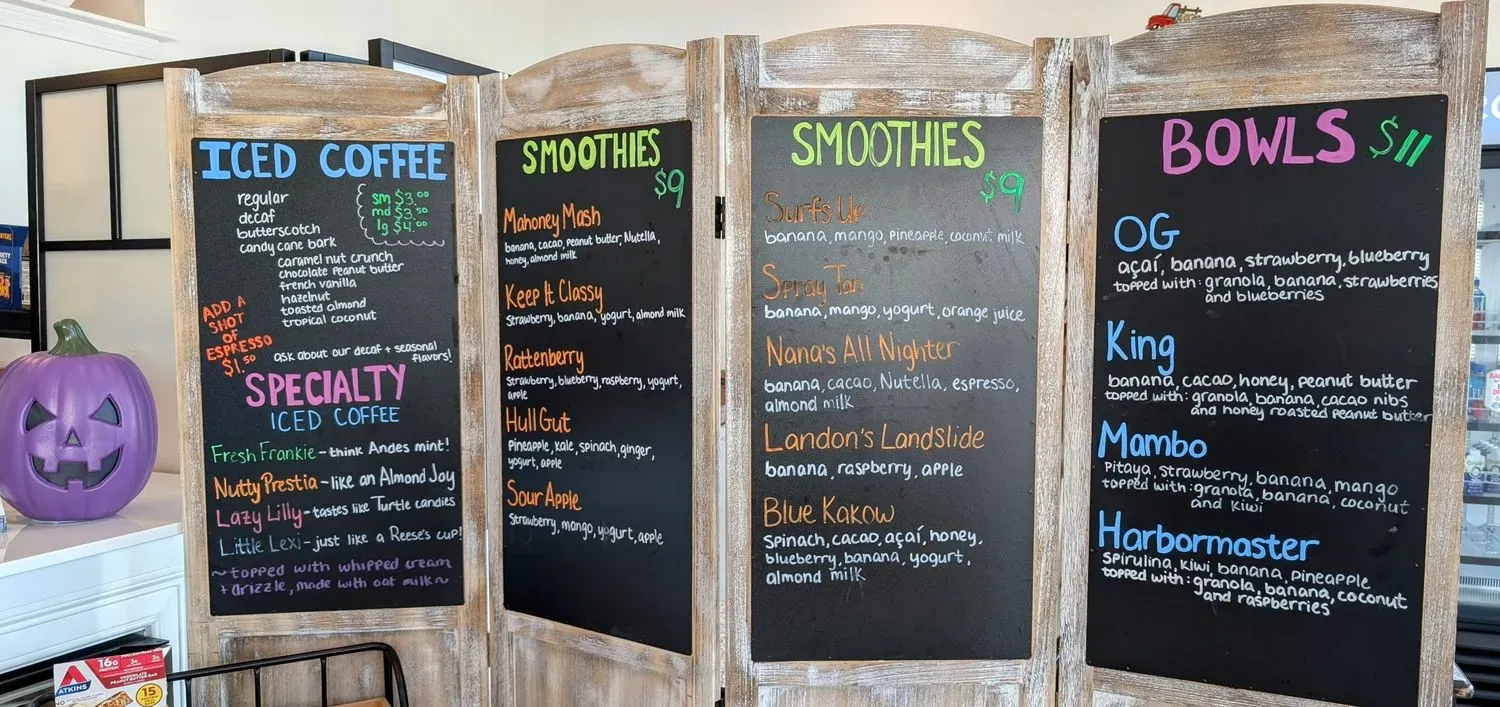 ICED COFFEE
regular
decaf
butterscotch
candy cane bark
caramel nut crunch
chocolate peanut butter
french vanilla
hazelnut
toasted almond
tropical coconut
sm $3.00
md $3.50
lg $4.00
ADD A
SHOT
OF
ESPRESSO
$1.50
ask about our decaf + seasonal
flavors!
SPECIALTY
ICED COFFEE
Fresh Frankie - think Andes mint!
Nutty Prestia - like an Almond Joy
Lazy Lilly - tastes like Turtle candies
Little Lexi - just like a Reese's cup!
~topped with whipped cream
+ drizzle, made with oat milk~
SMOOTHIES
$9
Mahoney Mash
banana, cacao, peanut butter, Nutella,
honey, almond milk
Keep It Classy
Strawberry, banana, yogurt, almond milk
Rattenberry
Strawberry, blueberry, raspberry, yogurt,
apple
Hull Gut
Pineapple, kale, spinach, ginger,
yogurt, apple
Sour Apple
Strawberry, mango, yogurt, apple
SMOOTHIES
$9
Surf's Up
banana, mango, pineapple, coconut milk
Spray Tan
banana, mango, yogurt, orange juice
Nana's All Nighter
banana, cacao, Nutella, espresso,
almond milk
Landon's Landslide
banana, raspberry, apple
Blue Kakow
Spinach, cacao, açaí, honey,
blueberry, banana, yogurt,
almond milk
BOWLS $11
OG
açaí, banana, strawberry, blueberry
topped with: granola, banana, strawberries
and blueberries
King
banana, cacao, honey, peanut butter
topped with: granola, banana, cacao nibs
and honey roasted peanut butter
Mambo
Pitaya, strawberry, banana, mango
topped with: granola, banana, coconut
and kiwi
Harbormaster
Spirulina, kiwi, banana, pineapple
topped with: granola, banana, coconut
and raspberries
ATKINS
16g
CHOCOLATE
PEANUT BUTTER BAR
15